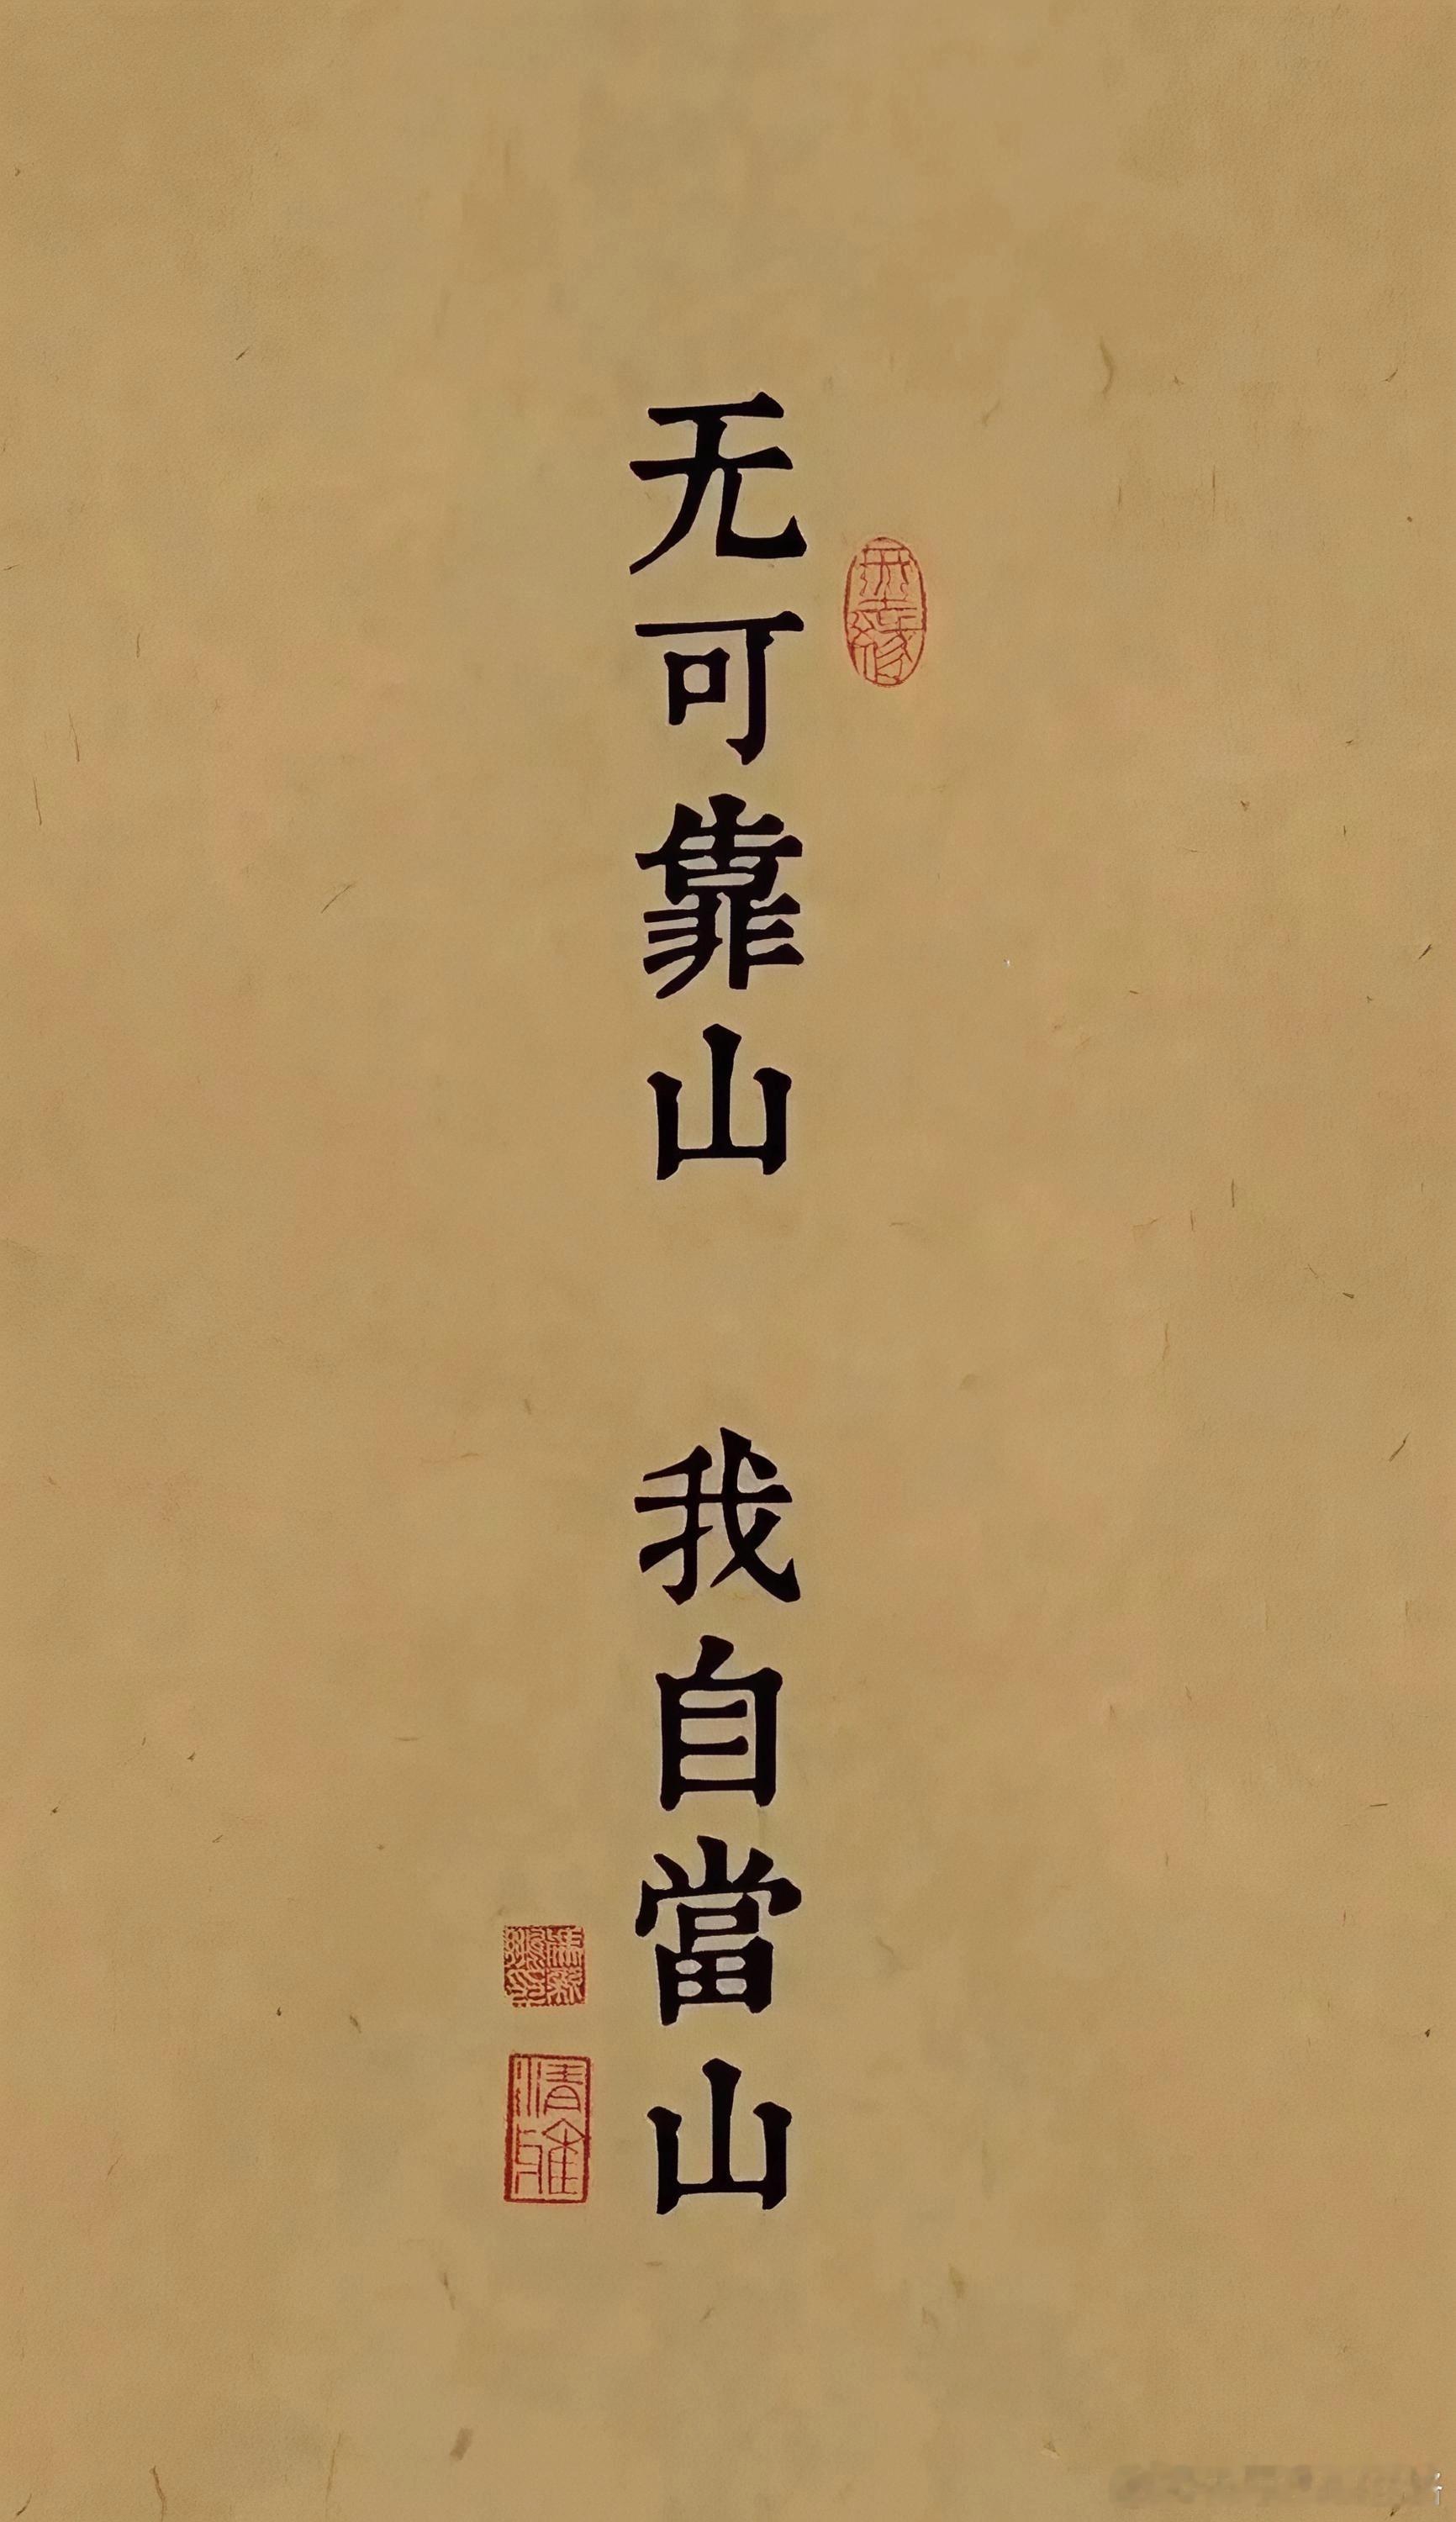 无可靠山
我自當山
清雅